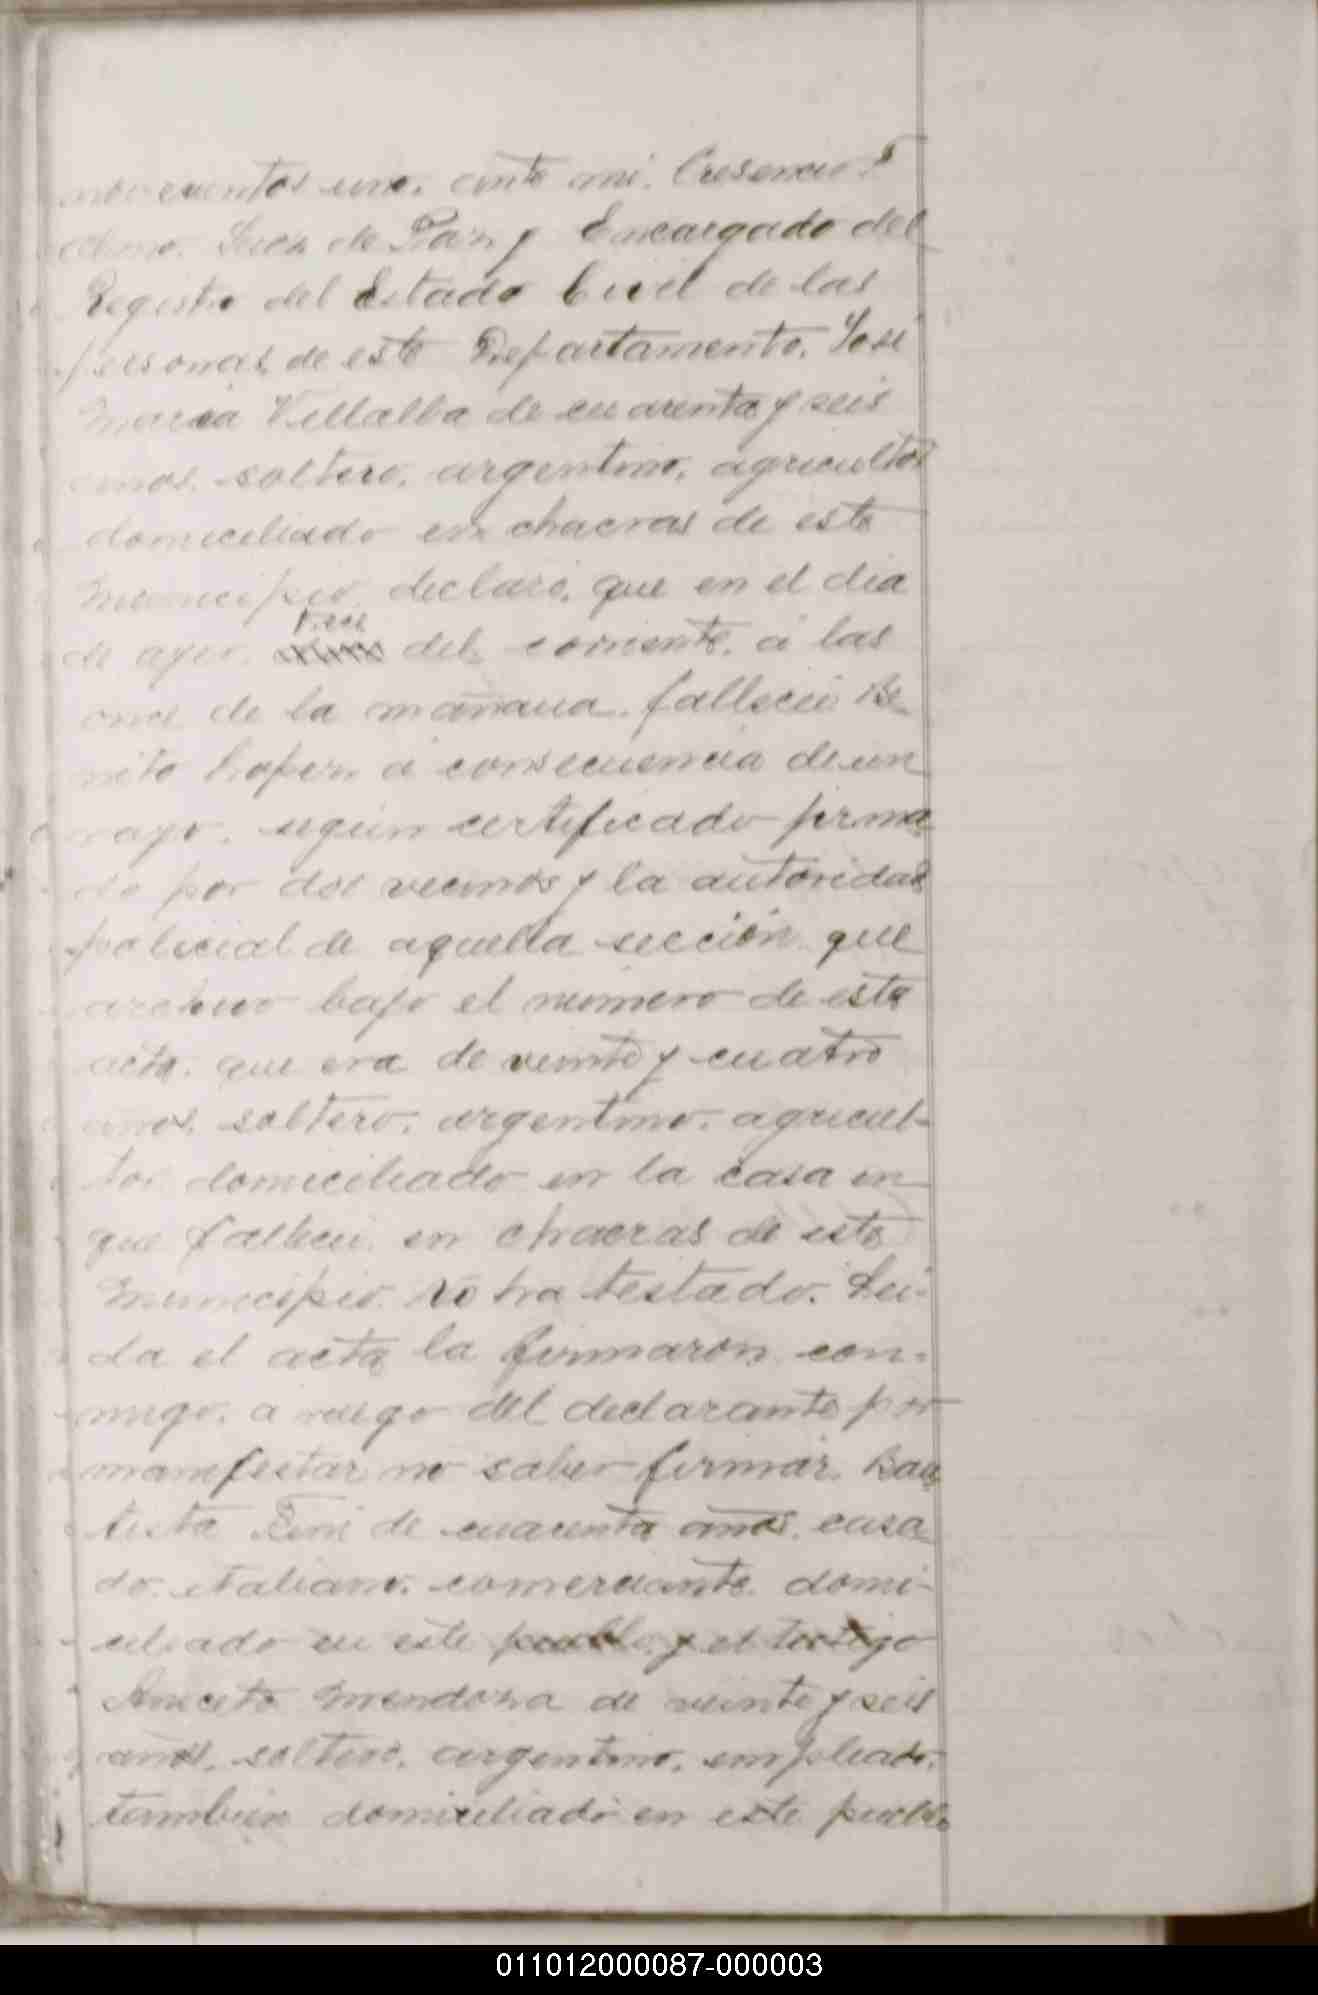 novecientos uno. ante mi. Cresencio S
Juez de Paz y Encargado del
Registro del Estado Civil de las
personas de este Departamento. José
Maria Villalba de cuarenta y seis
anos. soltero. argentino. agricultor
domiciliado en chacras de este
Municipio, declaró, que en el dia
de ayer. trece del corriente. á las
once de la mañana. falleció Be
nito á consecuencia de un
rayo. segun certificado firma
do por dos vecinos y la autoridad
policial de aquella sección que
archivo bajo el número de esta
acta. que era de veinte y cuatro
años. soltero. argentino. agricul-
tor domiciliado en la casa en
que falleció en chacras de este
Municipio. No ha testado. Lei-
da el acta la firmaron con-
migo. a ruego del declarante por
manifestar no saber firmar. Bau
tista de cuarenta años. casa
do. italiano. comerciante. domi-
ciliado en este pueblo. y el testigo
Aniceto Mendoza de veinte y seis
años. soltero. argentino. empleado.
tambien domiciliado en este pueblo
011012000087-000003